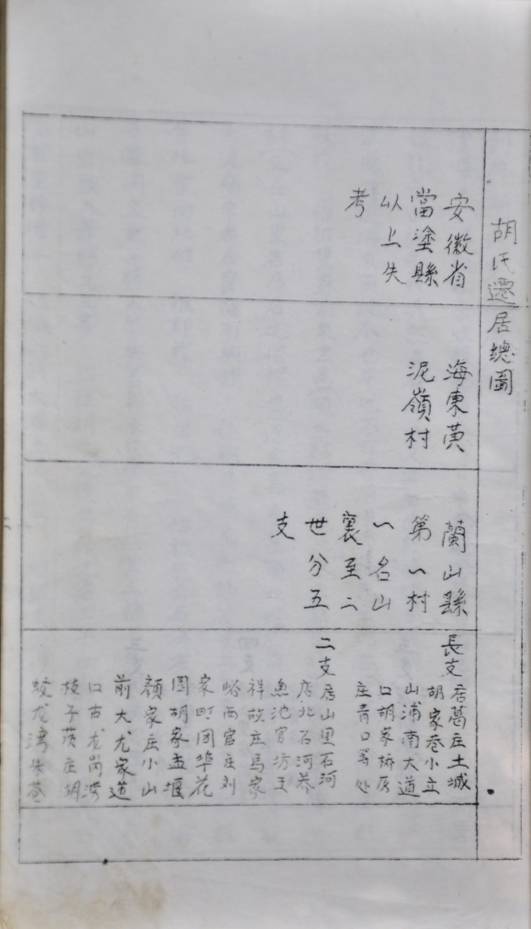 胡氏遷居總圖
安徽省
當塗縣
以上失
考
海東黄
泥嶺村
蘭山縣
第一村
一名山
裏至二
世分五
支
長支居葛庄土城
胡家巷小立
山浦南大道
口胡家桥房
庄青口等处
二支居山里石河
店北石河巷
魚池官坊王
祥 庄馬家
峪西官庄刘
家町固埠花
園胡家孟堰
顏家庄小山
前大尤家道
口古龙崗湾
枝子 庄胡
龙湾